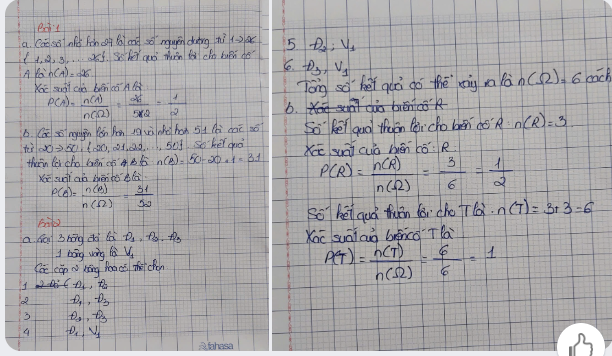 Bài 1
a. Các số nhỏ hơn 27 là các số nguyên dương từ 1→26
{1, 2, 3, ... 26}. Số kết quả thuận lợi cho biến cố
A là n(A) = 26
Xác suất của biến cố A là
P(A) = n(A) / n(Ω) = 26 / 52 = 1 / 2
b. Các số nguyên lớn hơn 19 và nhỏ hơn 51 là các số
từ 20→50, {20, 21, 22, ... 50}. Số kết quả
thuận lợi cho biến cố B là n(B) = 50-20+1 = 31
Xác suất của biến cố B là:
P(B) = n(B) / n(Ω) = 31 / 52
Bài 2
a. Gọi 3 bông đỏ là Đ1, Đ2, Đ3
1 bông vàng là V1
Các cặp 2 bông hoa có thể chọn
1 Đ1, Đ2
2 Đ1, Đ3
3 Đ2, Đ3
4 Đ1, V1
5 Đ2, V1
6. Đ3, V1
Tổng số kết quả có thể xảy ra là n(Ω) = 6 cách
b. Xác suất của biến cố R
Số kết quả thuận lợi cho biến cố R. n(R) = 3
Xác suất của biến cố: R
P(R) = n(R) / n(Ω) = 3 / 6 = 1 / 2
Số kết quả thuận lợi cho T là. n(T) = 3+3=6
Xác suất của biến cố T là
P(T) = n(T) / n(Ω) = 6 / 6 = 1